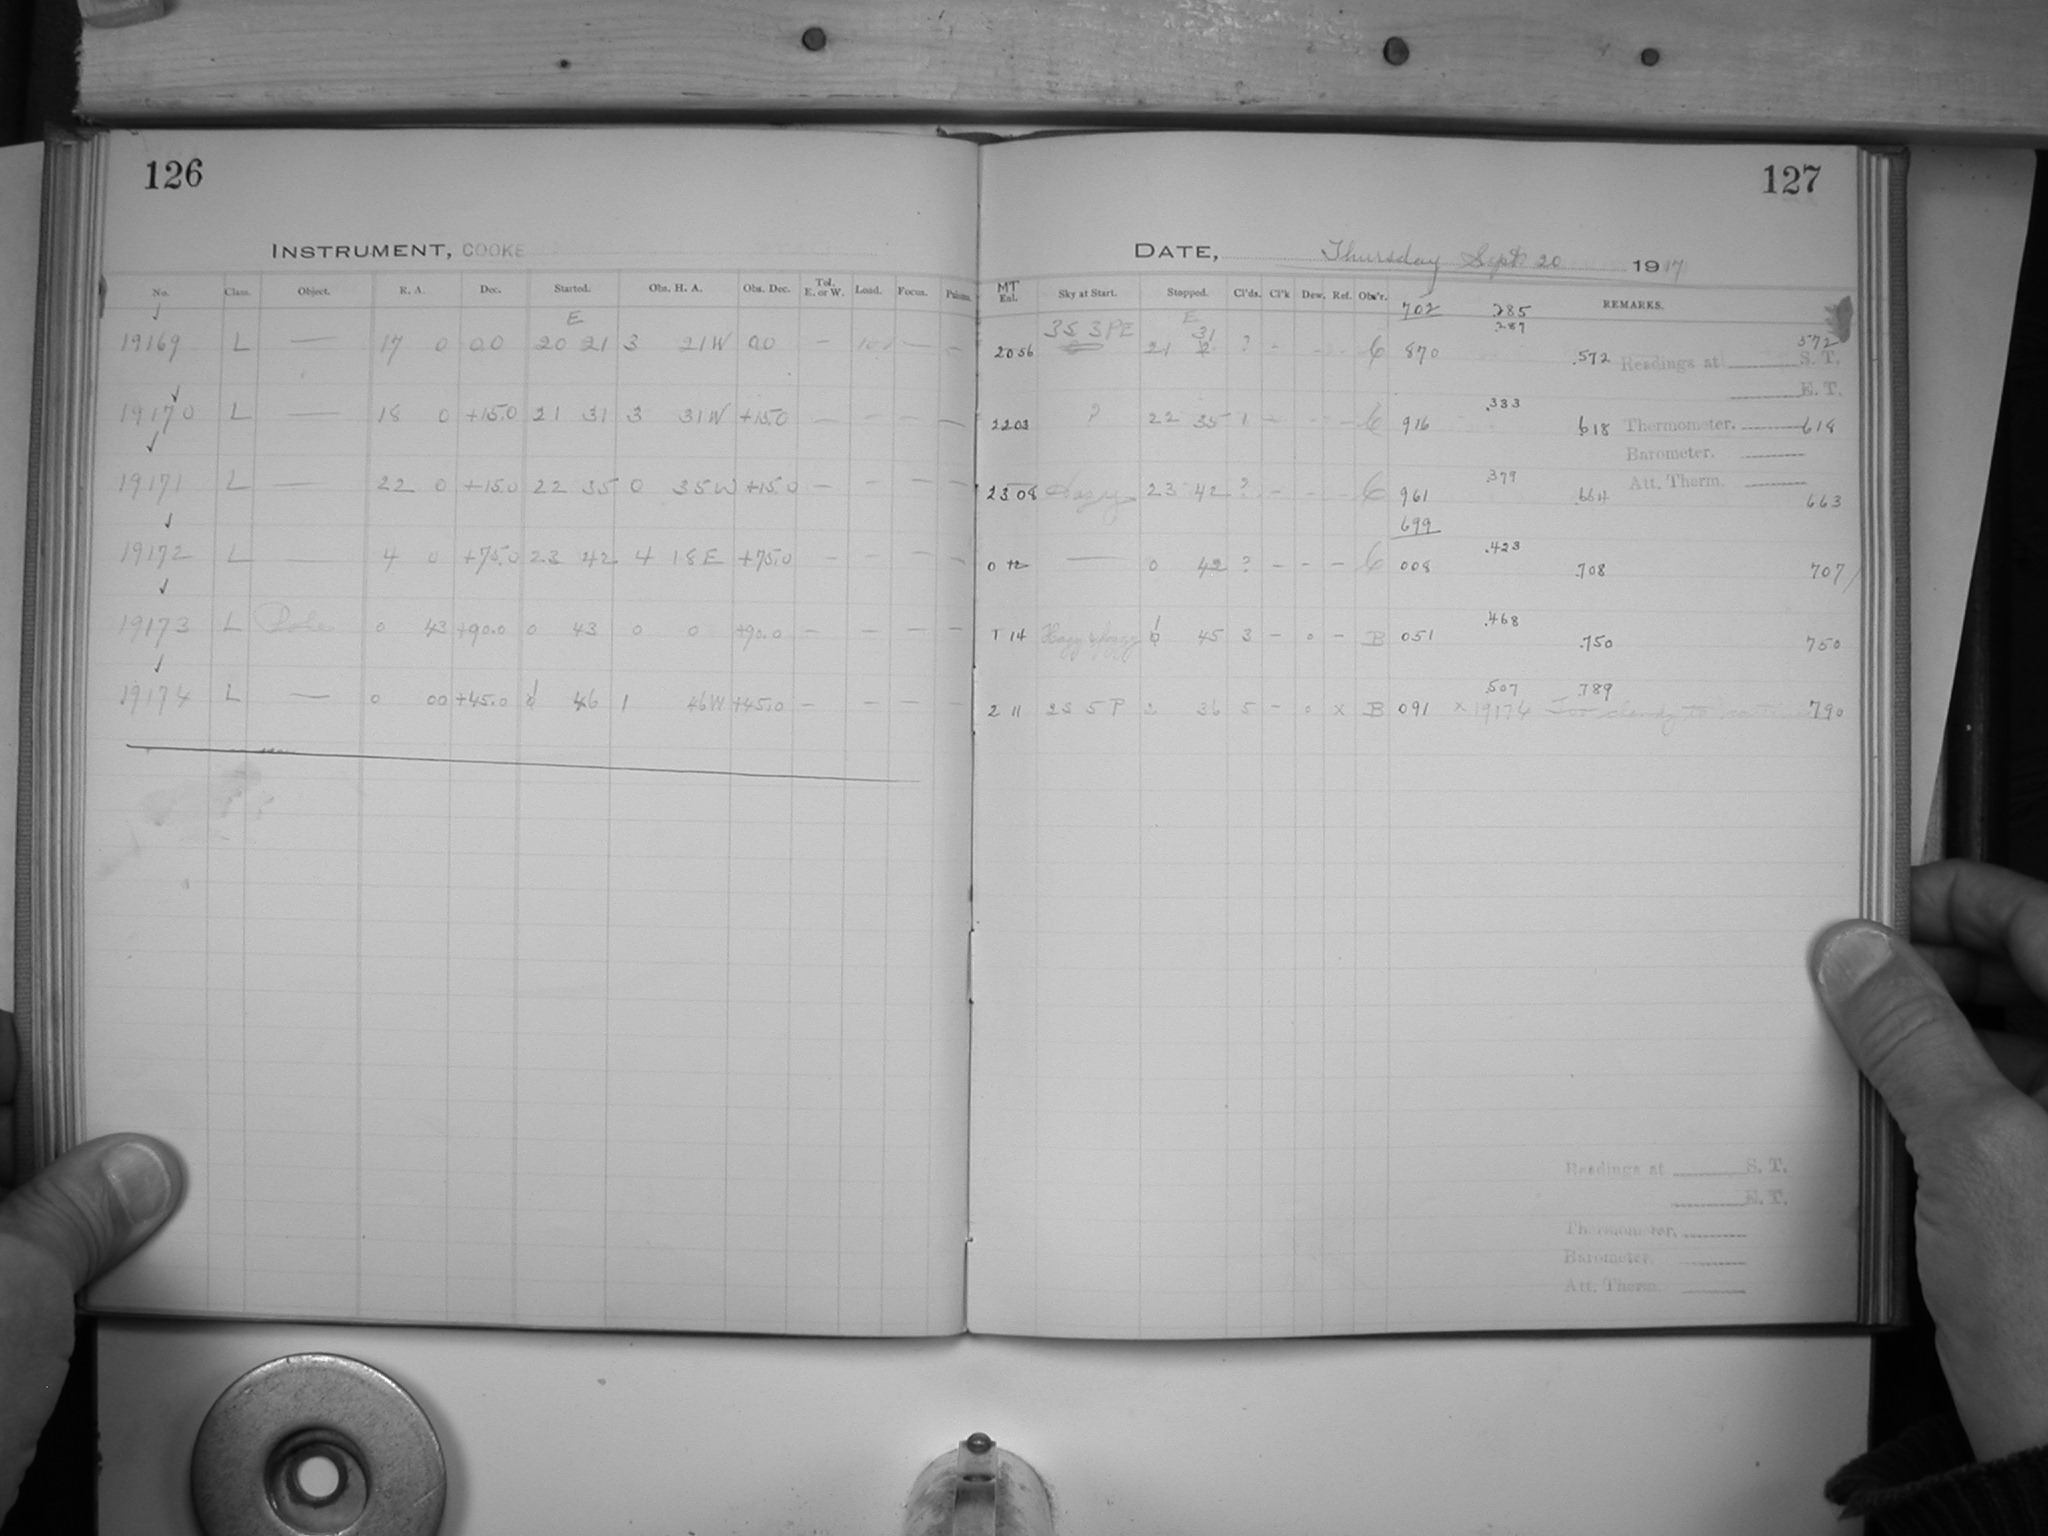 126
INSTRUMENT, COOKE
No. Class. Object. R. A. Dec. Started. Obs. H. A. Obs. Dec. Tel. E. or W. Load. Focus.
E
19169 L — 17 0 00 20 21 3 21W 00 —
19170 L — 18 0 +15.0 21 31 3 31W +15.0 — — — —
19171 L — 22 0 +15.0 22 35 0 35W +15.0 — — — —
19172 L — 4 0 +75.0 23 42 4 18E +75.0 — — — —
19173 L Pole 0 43 +90.0 0 43 0 0 +90.0 — — — —
19174 L — 0 00 +45.0 1 46 1 46W +45.0 — — — —
127
DATE, Thursday Sept. 20 1917
MT
Enl. Sky at Start. Stopped. Cl'ds. Cl'k Dew. Ref. Obs'r. REMARKS.
702 .285
.287
E
2056 3S 3PE 21 31 ? - - - C 870 .572 572
Readings at S. T.
E. T.
.333
2203 ? 22 35 1 - - - C 916 618 Thermometer. 618
Barometer.
.379
2308 Foggy 23 42 ? - - - C 961 .664 Att. Therm. 663
699
.423
0 12 — 0 42 ? - - - C 008 .708 707
.468
1 14 Hazy & foggy 1 45 3 - 0 - B 051 .750 750
.507 .789
2 11 2S 5P 2 36 5 - 0 x B 091 x 19174 Too cloudy to 790
Readings at S. T.
E. T.
Thermometer.
Barometer.
Att. Therm.